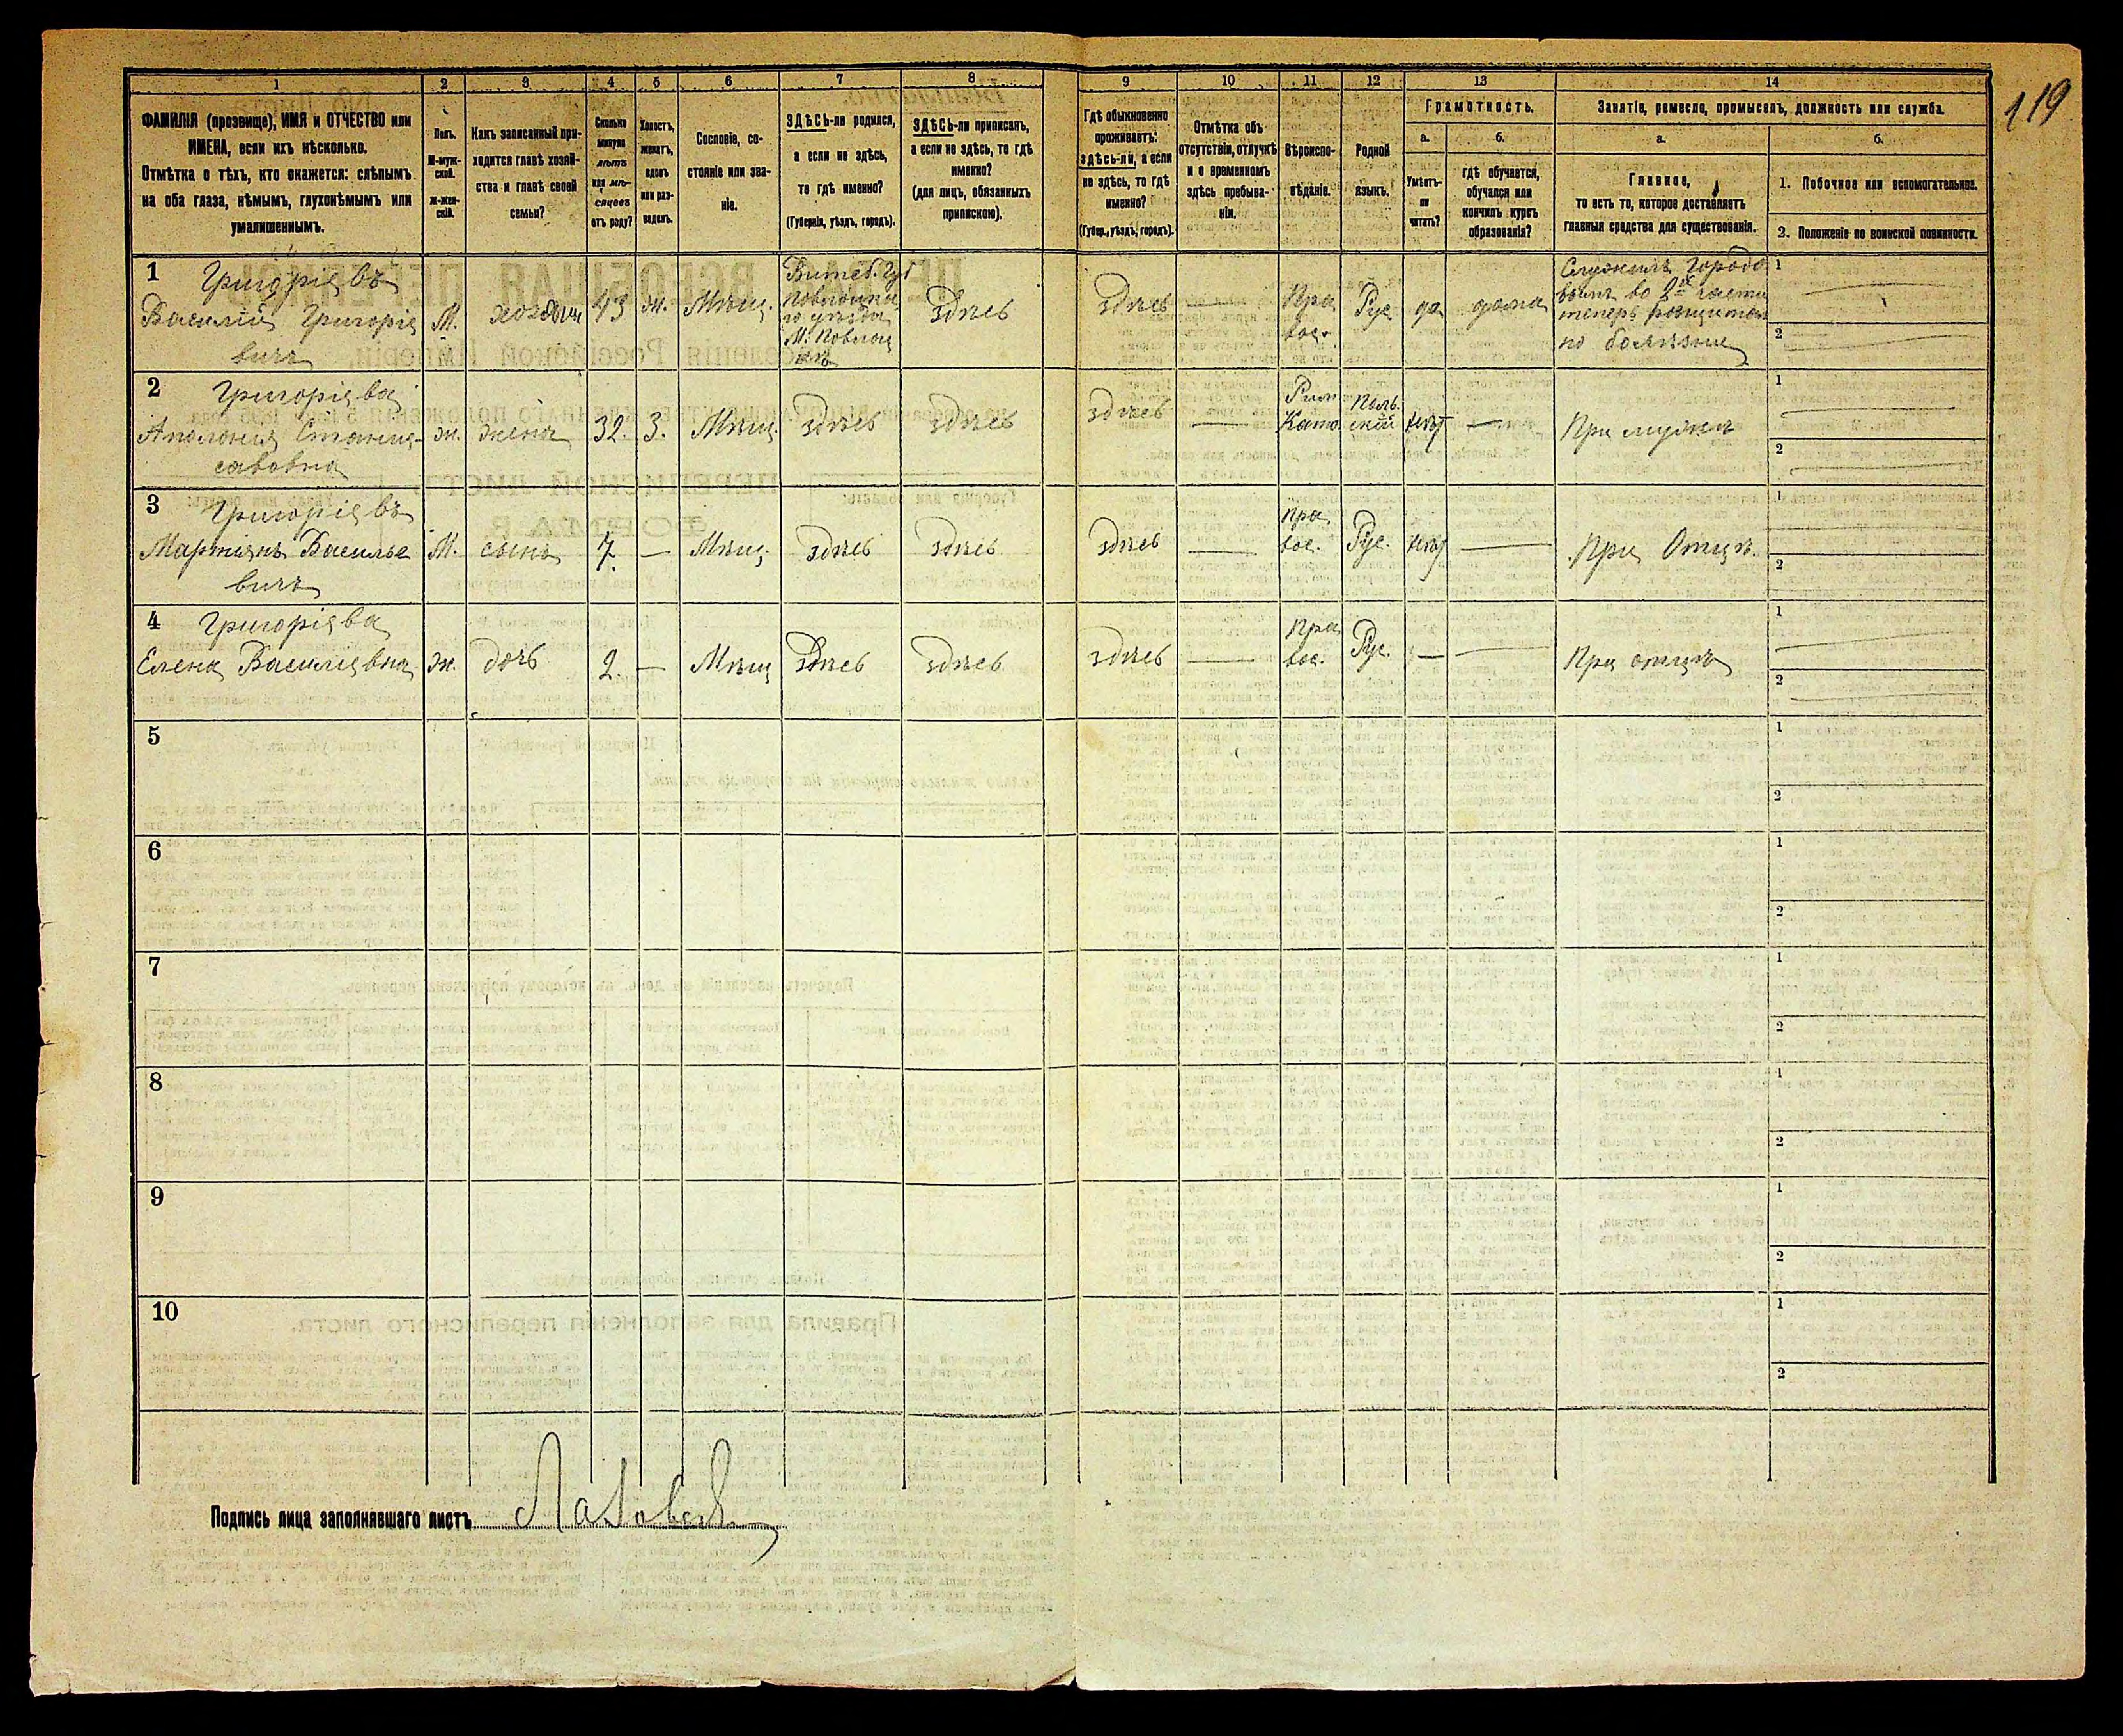 119
1
2
3
4
5
6
7
8
9
10
11
12
13
14
ФАМИЛІЯ (прозвище), ИМЯ и ОТЧЕСТВО или
ИМЕНА, если ихъ нѣсколько.
Отмѣтка о тѣхъ, кто окажется: слѣпымъ
на оба глаза, нѣмымъ, глухонѣмымъ или
умалишеннымъ.
Полъ.
М-муж-
ской.
Ж-жен-
скій.
Какъ записанный при-
ходится главѣ хозяй-
ства и главѣ своей
семьи?
Сколько
минуло
лѣтъ
или мѣ-
сяцевъ
отъ роду?
Холостъ,
женатъ,
вдовъ
или раз-
веденъ.
Сословіе, со-
стояніе или зва-
ніе.
ЗДѢСЬ-ли родился,
а если не здѣсь,
то гдѣ именно?
(Губернія, уѣздъ, городъ).
ЗДѢСЬ-ли приписанъ,
а если не здѣсь, то гдѣ
именно?
(для лицъ, обязанныхъ
припискою).
Гдѣ обыкновенно
проживаетъ:
здѣсь-ли, а если
не здѣсь, то гдѣ
именно?
(Губер., уѣздъ, городъ).
Отмѣтка объ
отсутствіи, отлучкѣ
и о временномъ
здѣсь пребыва-
ніи.
Вѣроиспо-
вѣданіе.
Родной
языкъ.
Грамотность.
а.
Умѣетъ-
ли
читать?
б.
гдѣ обучается,
обучался или
кончилъ курсъ
образованія?
Занятіе, ремесло, промыселъ, должность или служба.
а.
Главное,
то есть то, которое доставляетъ
главныя средства для существованія.
б.
1. Побочное или вспомогательное.
2. Положеніе по воинской повинности.
1 Григоріевъ
Василій Григоріе
вичъ
М.
хозяинъ
43
ж.
Мѣщ.
Витеб. Губ
М.
здѣсь
здѣсь
Пра
вос.
Рус
да
дома
Служилъ Городо
вымъ во 2й части
теперь
по болѣзни
1
2
2 Григоріева
Аполонія Станис-
лавовна
ж.
жена
32.
З.
Мѣщ.
здѣсь
здѣсь
здѣсь
Рим
Като.
Поль.
скій
нѣт
При мужѣ
1
2
3 Григоріевъ
Мартіянъ Василье
вичъ
М.
сынъ
7.
Мѣщ.
здѣсь
здѣсь
здѣсь
пра
вос.
Рус.
нѣт
При Отцѣ.
1
2
4 Григоріева
Елена Василіевна
ж.
дочь
2.
Мѣщ
здѣсь
здѣсь
здѣсь
Пра
вос.
Рус.
При отцѣ
1
2
5
1
2
6
1
2
7
1
2
8
1
2
9
1
2
10
1
2
Подпись лица заполнявшаго листъ